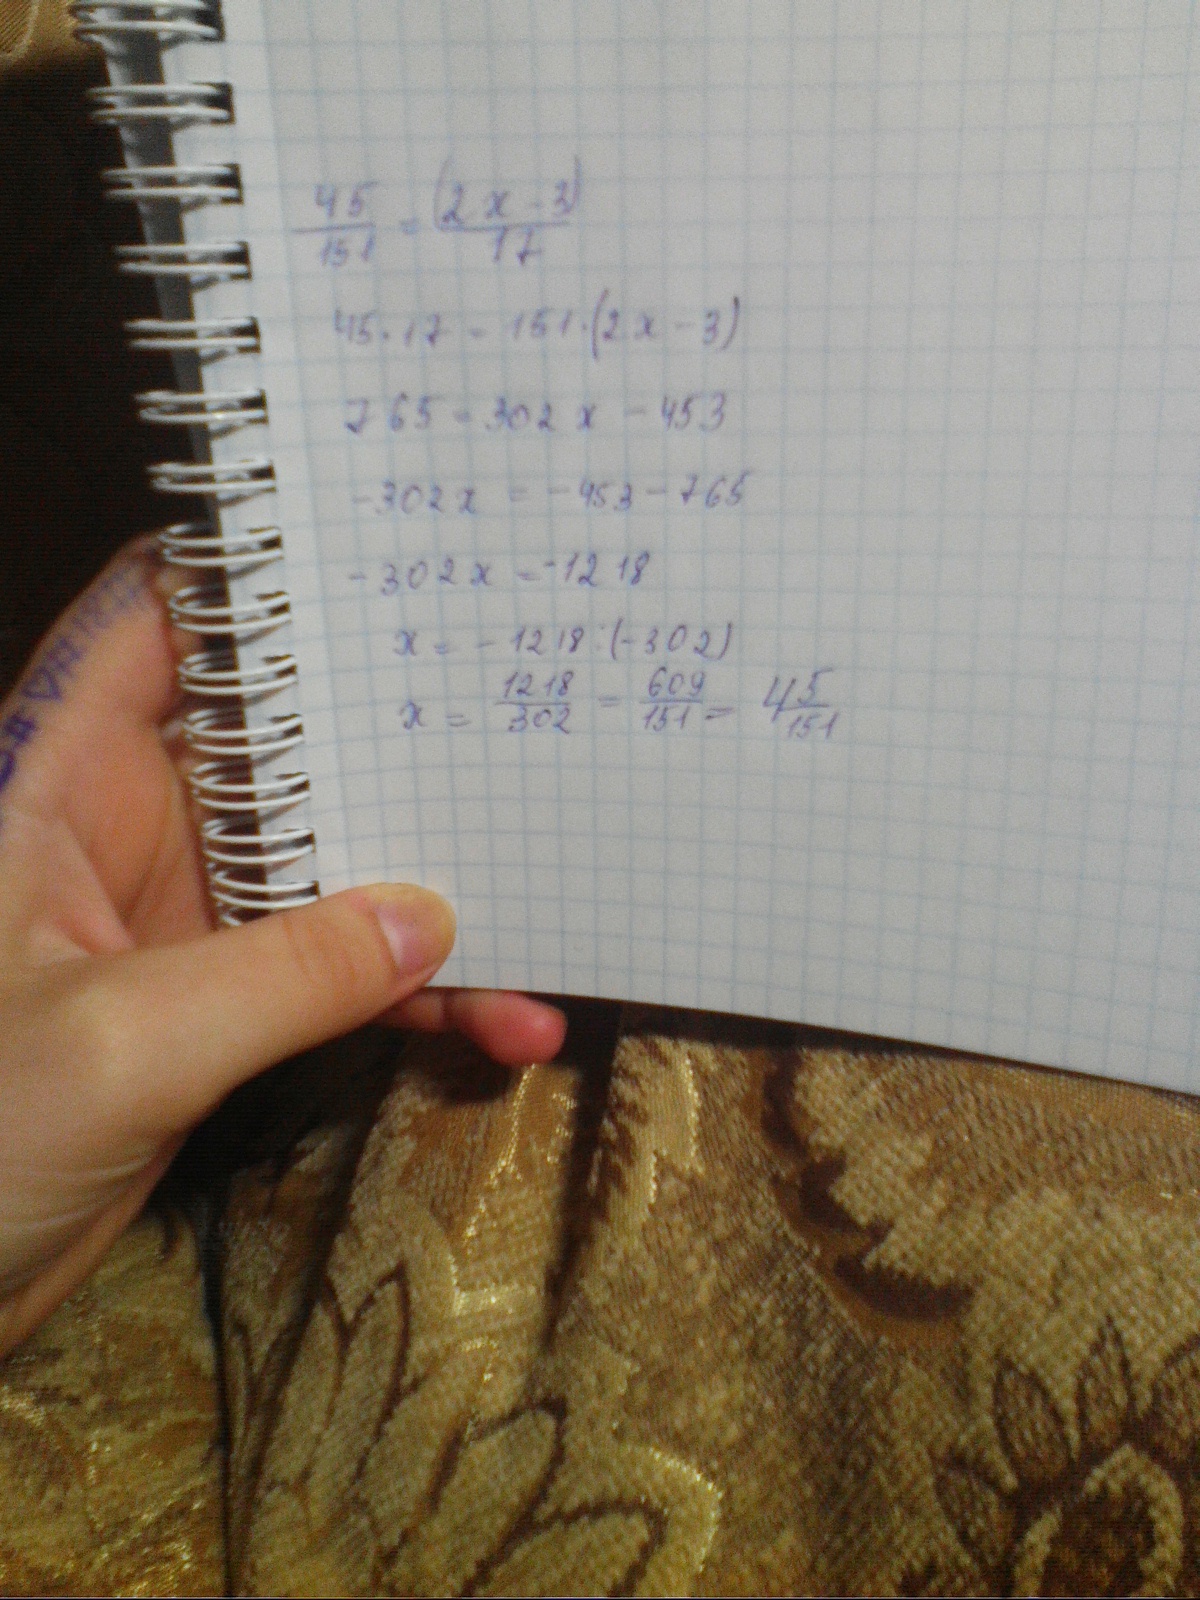 45/151 = (2x-3)/17
45·17 = 151·(2x-3)
765 = 302x - 453
-302x = -453-765
-302x = -1218
x = -1218:(-302)
x = 1218/302 = 609/151 = 4 5/151